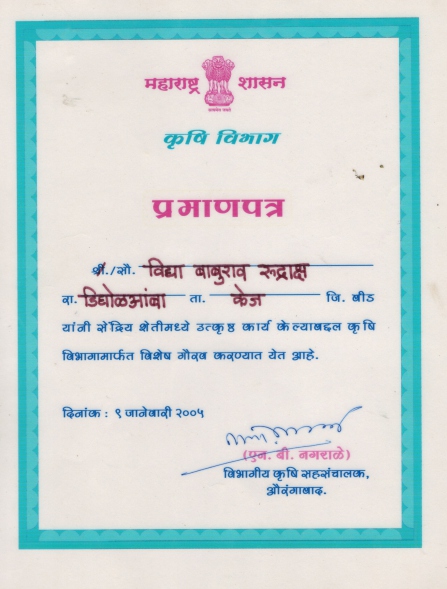 महाराष्ट्र शासन
कृषि विभाग
प्रमाणपत्र
श्री./सौ. विद्या बाबुराव रुद्राक्ष
रा. डिघोळआंबा ता. केज जि. बीड
यांनी सेंद्रिय शेतीमध्ये उत्कृष्ठ कार्य केल्याबद्दल कृषि
विभागामार्फत विशेष गौरव करण्यात येत आहे.
दिनांक : ९ जानेवारी २००५
(एन. बी. नगराळे)
विभागीय कृषि सहसंचालक,
औरंगाबाद.